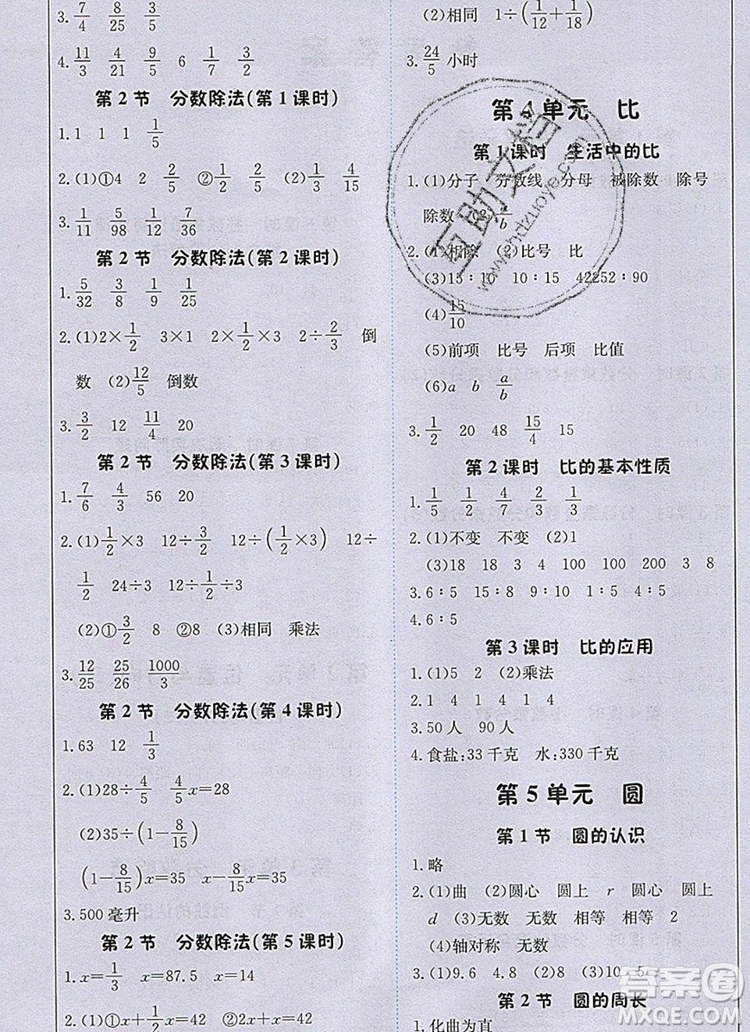 3. 7/5 8/9 4/7 1/4 4/5
4. 11/3 4/21 6/11 7 1/6 3/2
第2节 分数除法(第1课时)
1. 1 1 1 1/5
2. (1)① 4 2 2/5 ② 1/2 2/3 4/5
3. 7/18 5/98 1/12 1/5
第2节 分数除法(第2课时)
1. 5/32 3/8 1/9 1/25
2. (1)2×1/2 3×1 2×3/2 2÷2/3 倒
数 (2)12/5 倒数
3. 3/2 12 11/4 20
第2节 分数除法(第3课时)
1. 7/6 4/3 56 20
2. (1)(1/2×3) 12÷3/2 12÷(1/2×3) 12÷
1/2 24÷3 12÷1/2÷3
(2)①3/2 8 ②8 (3)相同 乘法
3. 12/25 25/26 1000/3
第2节 分数除法(第4课时)
1. 63 12 1/3
2. (1)28÷4/5 4/5x=28
(2)35÷(1-8/15)
(1-8/15)x=35 x-8/15x=35
3. 500 毫升
第2节 分数除法(第5课时)
1. x=1/3 x=87.5 x=14
(2)相同 1÷(1/12+1/18)
3. 24/5 小时
第4单元 比
第1课时 生活中的比
1. (1)分子 分数线 分母 被除数 除号
除数 (2)a/b
2. (1)相除 (2)比号 比
(3)15∶10 10∶15 42252∶90
(4)15/10
(5)前项 比号 后项 比值
(6)a b a/b
3. 1/2 20 48 15/4 15
第2课时 比的基本性质
1. 1/5 1/5 4/5 1/2
2. (1)不变 不变 (2)1
(3)18 18 3 4 100 100 200 3 8
3. 6∶5 15∶8 9∶10 1∶5 8∶9
4. 6∶5
第3课时 比的应用
1. (1)5 2 (2)乘法
2. 1 4 1 4 1 4
3. 50 人 90 人
4. 食盐:33 千克 水:330 千克
第5单元 圆
第1节 圆的认识
1. 略
2. (1)曲 (2)圆心 圆上 r 圆心 圆上
d (3)无数 无数 相等 相等 2
(4)轴对称 无数
3. (1)9.6 4.8 (2)5.4 10.8
第2节 圆的周长
1. 化曲为直
互助文档
www.hdzuoye.com
答案圈